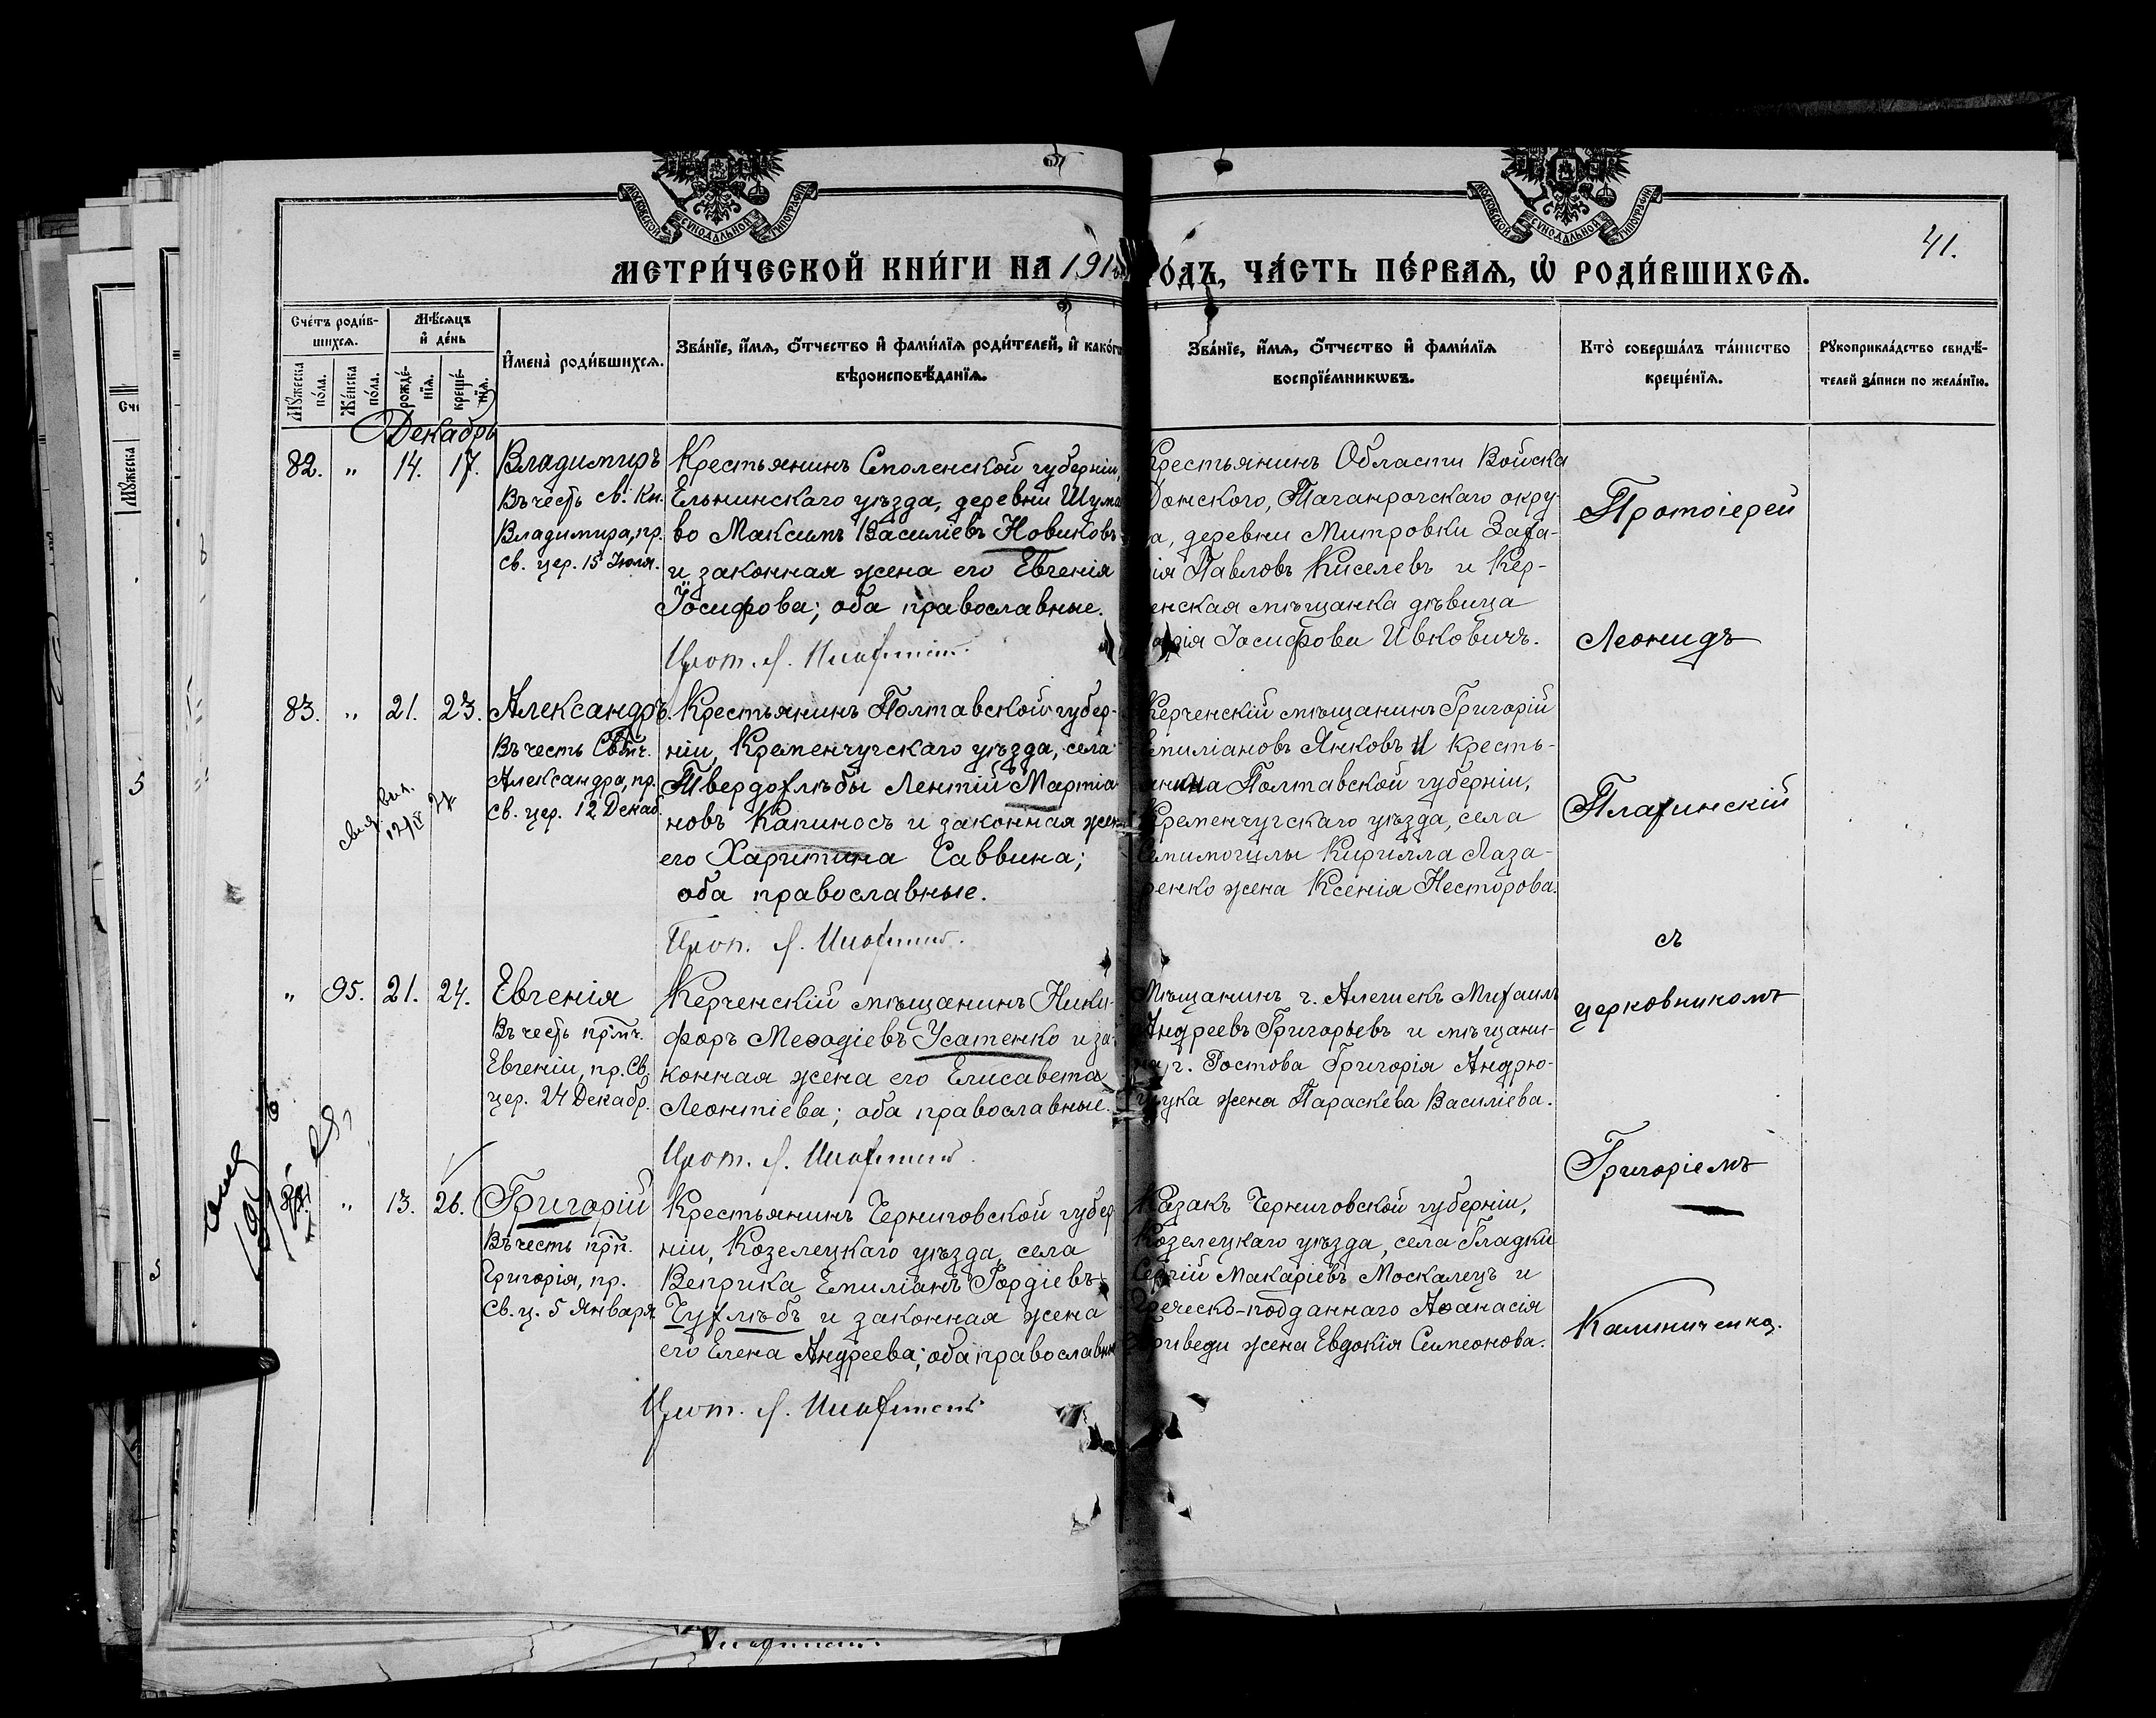 МОСКОВСКОЙ СѴНОДАЛЬНОЙ ТИПОГРАФІИ
МОСКОВСКОЙ СѴНОДАЛЬНОЙ ТИПОГРАФІИ
41.
МЕТРИ́ЧЕСКОЙ КНИ́ГИ НА 191
ГО́ДЪ, ЧА́СТЬ ПЕ́РВАѦ, Ѡ РОДИ́ВШИХСѦ.
Сче́тъ роди́в-
шихсѧ.
Мѣ́сѧцъ
и҆ де́нь
Мꙋ́жеска по́ла.
Же́нска по́ла.
рожде́-нїѧ.
креще́-нїѧ.
И҆мена̀ роди́вшихсѧ.
Зва́нїе, и҆́мѧ, ѻ҆́тчество и҆ фами́лїѧ роди́телей, и҆ како́гѡ
вѣроисповѣ́данїѧ.
Зва́нїе, и҆́мѧ, ѻ҆́тчество и҆ фами́лїѧ
воспрїе́мникѡвъ.
Кто̀ соверша́лъ та́инство
креще́нїѧ.
Рꙋкоприкла́дство свидѣ́-
телей за́писи по жела́нїю.
Декабрь
82. „ 14. 17. Владимиръ
Въ честь св. Кн.
Владимира, пр.
св. цер. 15 Июля.
Крестьянинъ Смоленской губерніи,
Ельнинскаго уѣзда, деревни Шума
во Максимъ Василіевъ Новиковъ
и законная жена его Евгенія
Іосифова; оба православные.
Прот. Л.
Крестьянинъ Области Войска
Донского, Таганрогскаго окру-
а, деревни Митровки Заха-
ія Павловъ Киселевъ и Кер-
енская мѣщанка дѣвица
арія Іосифова Ивковичъ.
Протоіерей
Леонидъ
83. „ 21. 23. Александръ.
Въ честь Св. мч.
Александра, пр.
св. цер. 12 Декаб.
Крестьянинъ Полтавской губер-
ніи, Кременчугскаго уѣзда, села
Твердохлѣбы Лентій Мартіа
новъ Капиносъ и законная жен
его Харитина Саввина;
оба православные.
Прот. Л.
Керченскій мѣщанинъ Григорій
Емиліановъ Янковъ и кресть-
янина Полтавской губерніи,
Кременчугскаго уѣзда, села
Семимогилы Кирилла Лаза-
ренко жена Ксенія Несторова.
Плахинскій
съ
„ 95. 21. 24. Евгенія
Въ честь прмч.
Евгеніи, пр. св.
цер. 24 Декабр.
Керченскій мѣщанинъ Ники-
форъ Меѳодіевъ Усатенко и за-
конная жена его Елисавета
Леонтіева; оба православные.
Прот. Л.
Мѣщанинъ г. Алешекъ Михаилъ
Андреевъ Григорьевъ и мѣщани-
на г. Ростова Григорія Андрю-
щука жена Параскева Василіева.
церковникомъ
Григоріемъ
„ 13. 26. Григорій
Въ честь прп.
Григорія, пр.
св. ц. 5 Января
Крестьянинъ Черниговской губер
ніи, Козелецкаго уѣзда, села
Веприка Емиліанъ Гордіевъ
Чухлѣбъ и законная жена
его Елена Андреева; оба православн
Прот. Л.
Казакъ Черниговской губерніи,
Козелецкаго уѣзда, села Гладки
Сергій Макаріевъ Москалецъ и
Греческо-подданнаго Аѳанасія
риведи жена Евдокія Симеонова.
Калиниченко.